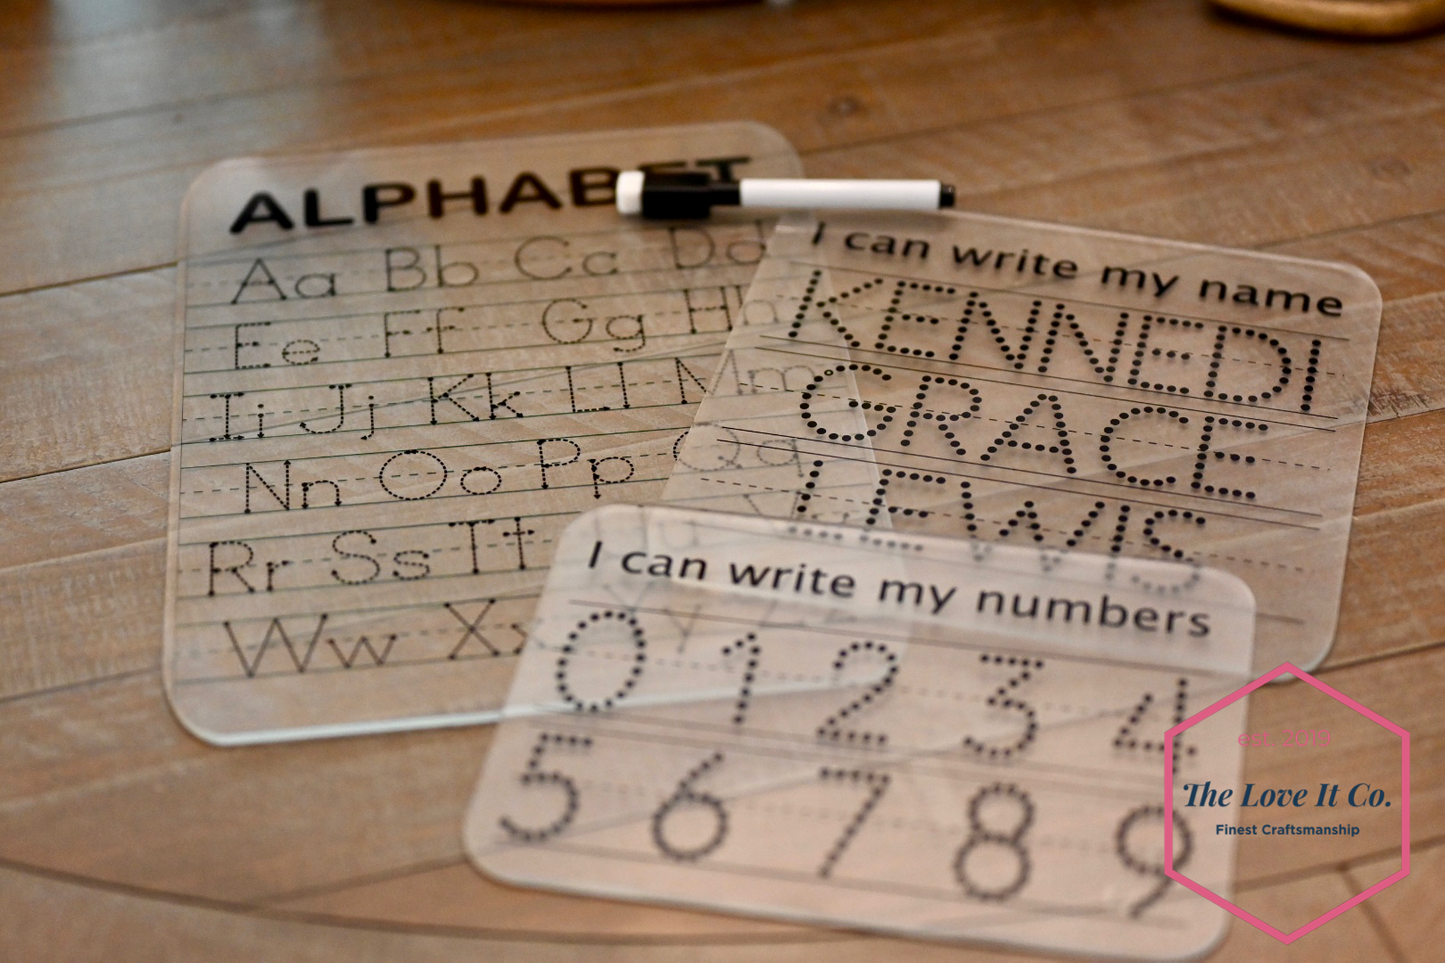 ALPHABET
Aa Bb Cc Dd
Ee Ff Gg Hh
Ii Jj Kk Ll Mm
Nn Oo Pp Qq
Rr Ss Tt
Ww Xx
I can write my name
KENNEDI
GRACE
LEWIS
I can write my numbers
0 1 2 3 4
5 6 7 8 9
est. 2019
The Love It Co.
Finest Craftsmanship